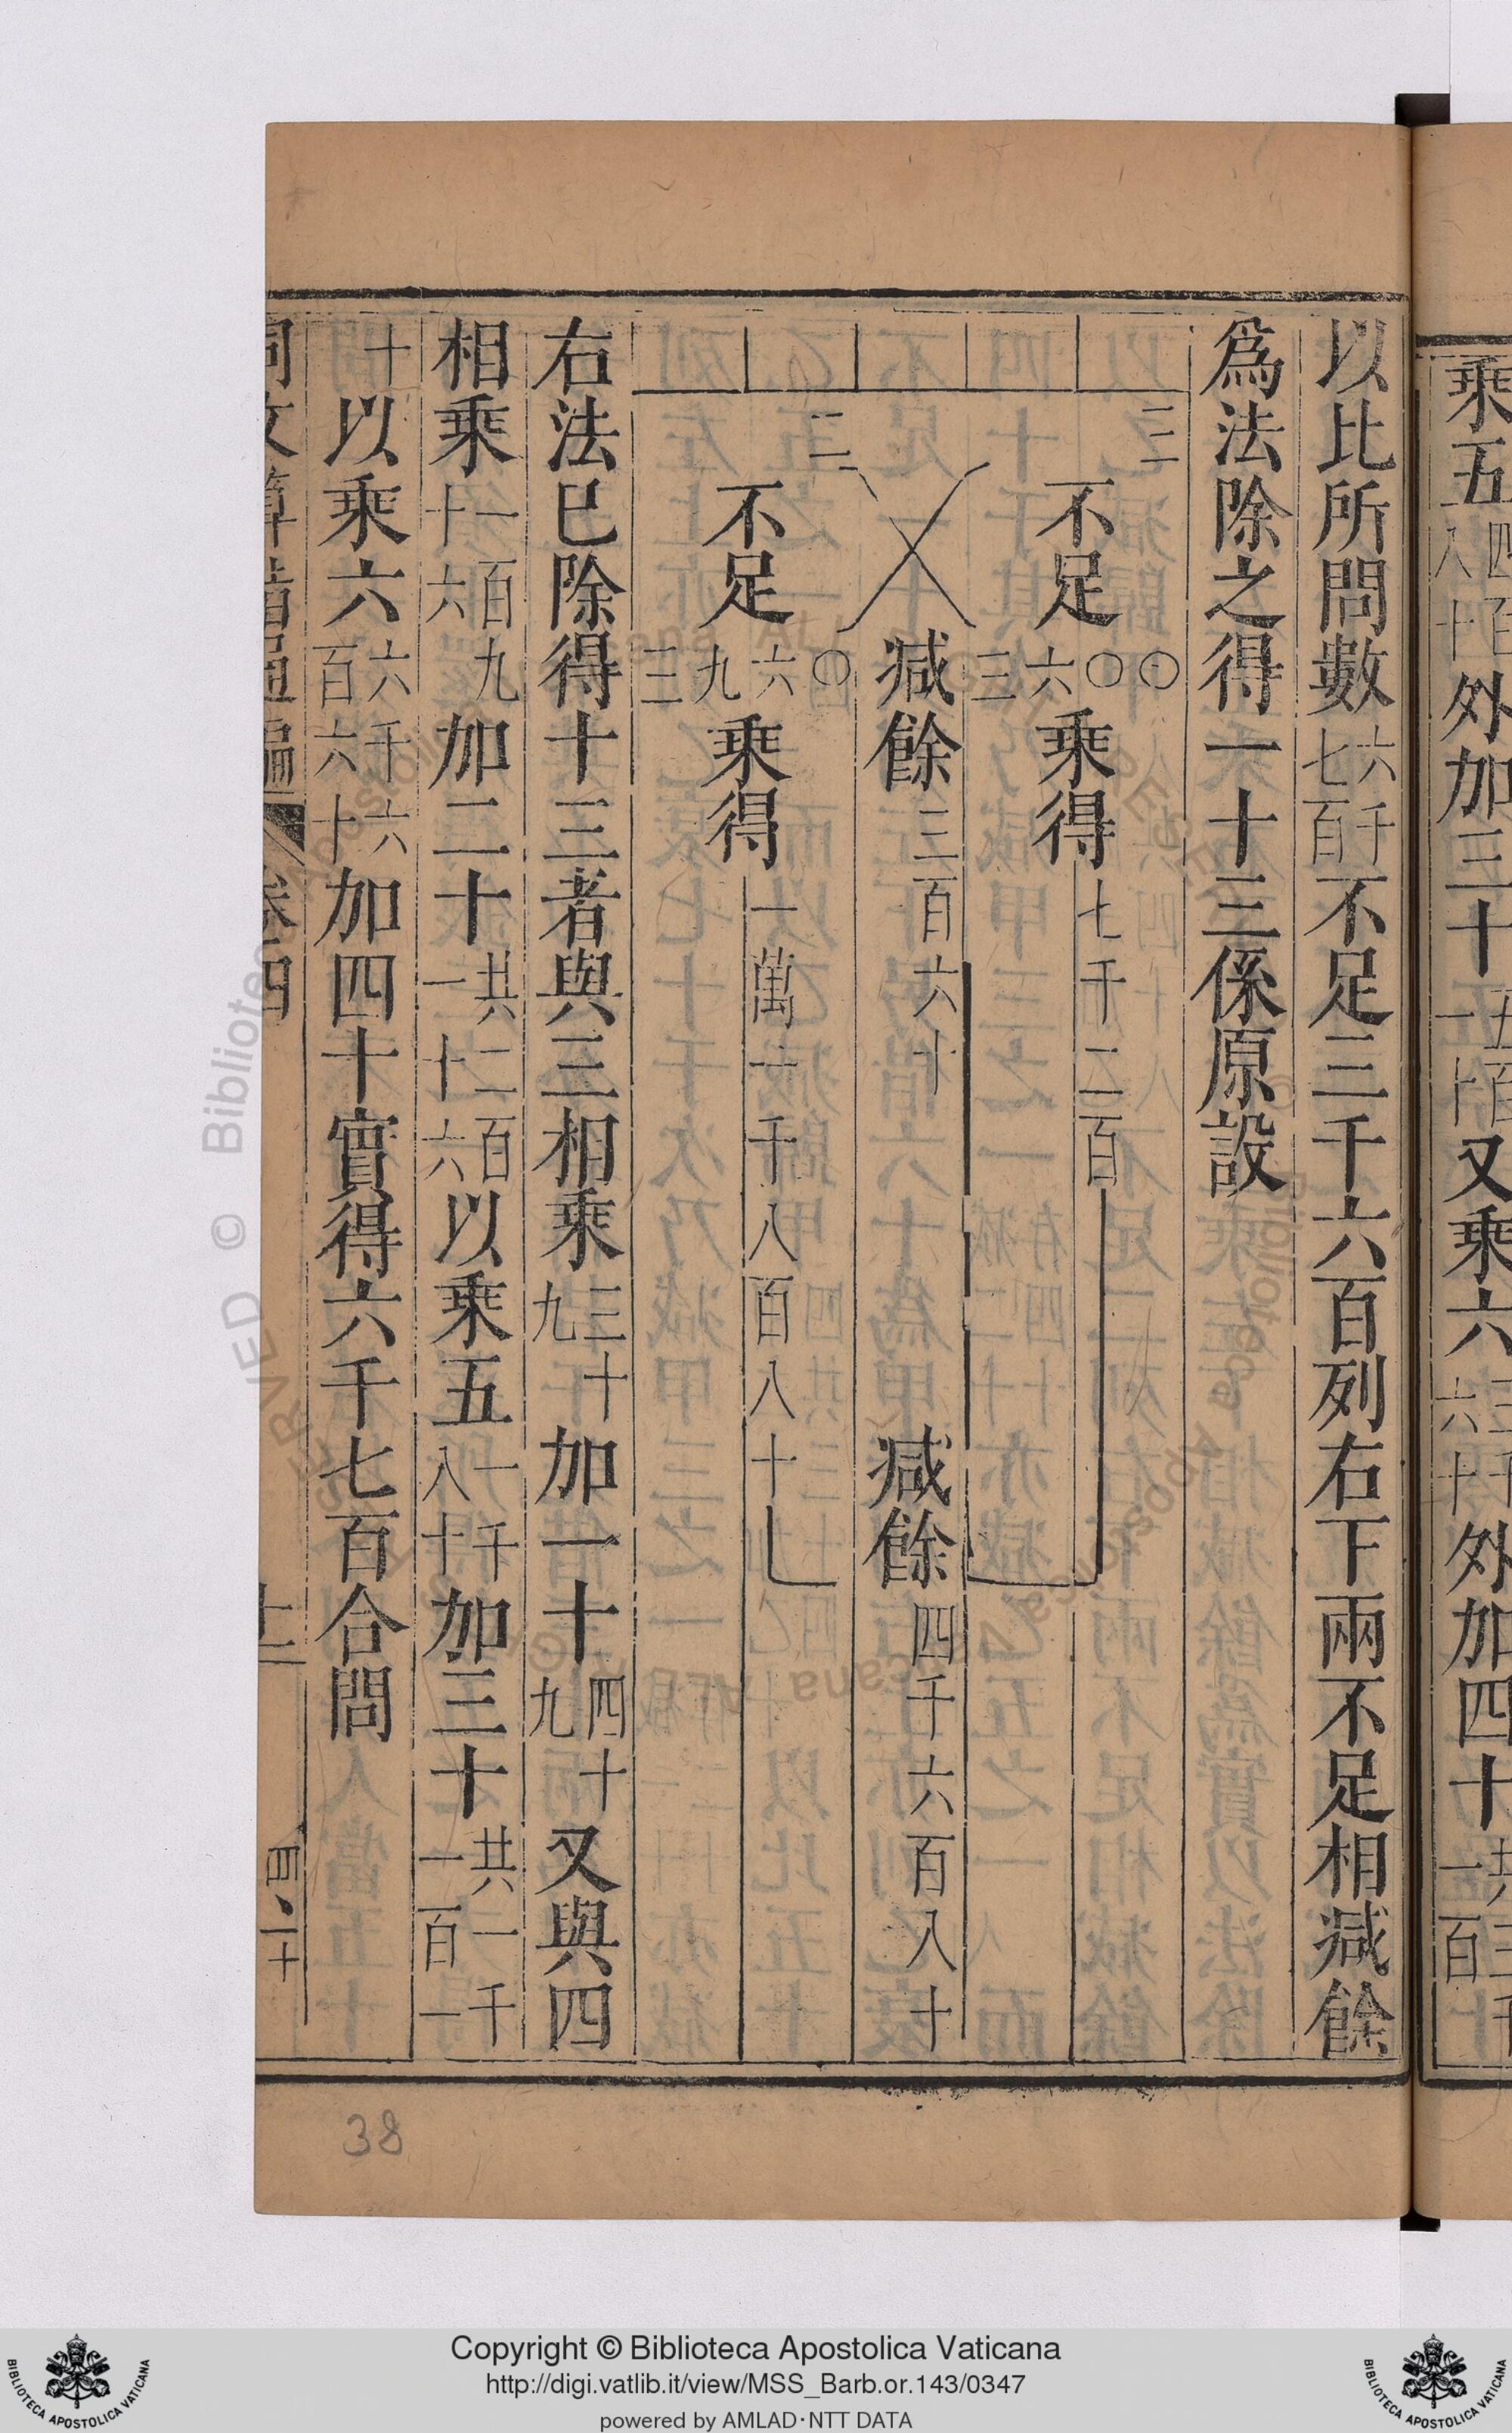 乘五四百八十外加三十五百一十又乘六三千六十外加四十共三千一百
以比所問數六千七百不足三千六百列右下兩不足相減餘
爲法除之得一十三係原設
三 不足三六〇〇乘得七千二百
減餘三百六十 減餘四千六百八十
二 不足三九六〇乘得一萬一千八百八十
右法已除得十三者與三相乘三十九加一十四十九又與四
相乘一百九十六加二十共二百一十六以乘五一千八十加三十共一千一百一
十以乘六六千六百六十加四十實得六千七百合問
同文算指通編 卷四 十二 四二十
38
Copyright © Biblioteca Apostolica Vaticana
http://digi.vatlib.it/view/MSS_Barb.or.143/0347
powered by AMLAD·NTT DATA
BIBLIOTECA APOSTOLICA VATICANA
BIBLIOTECA APOSTOLICA VATICANA